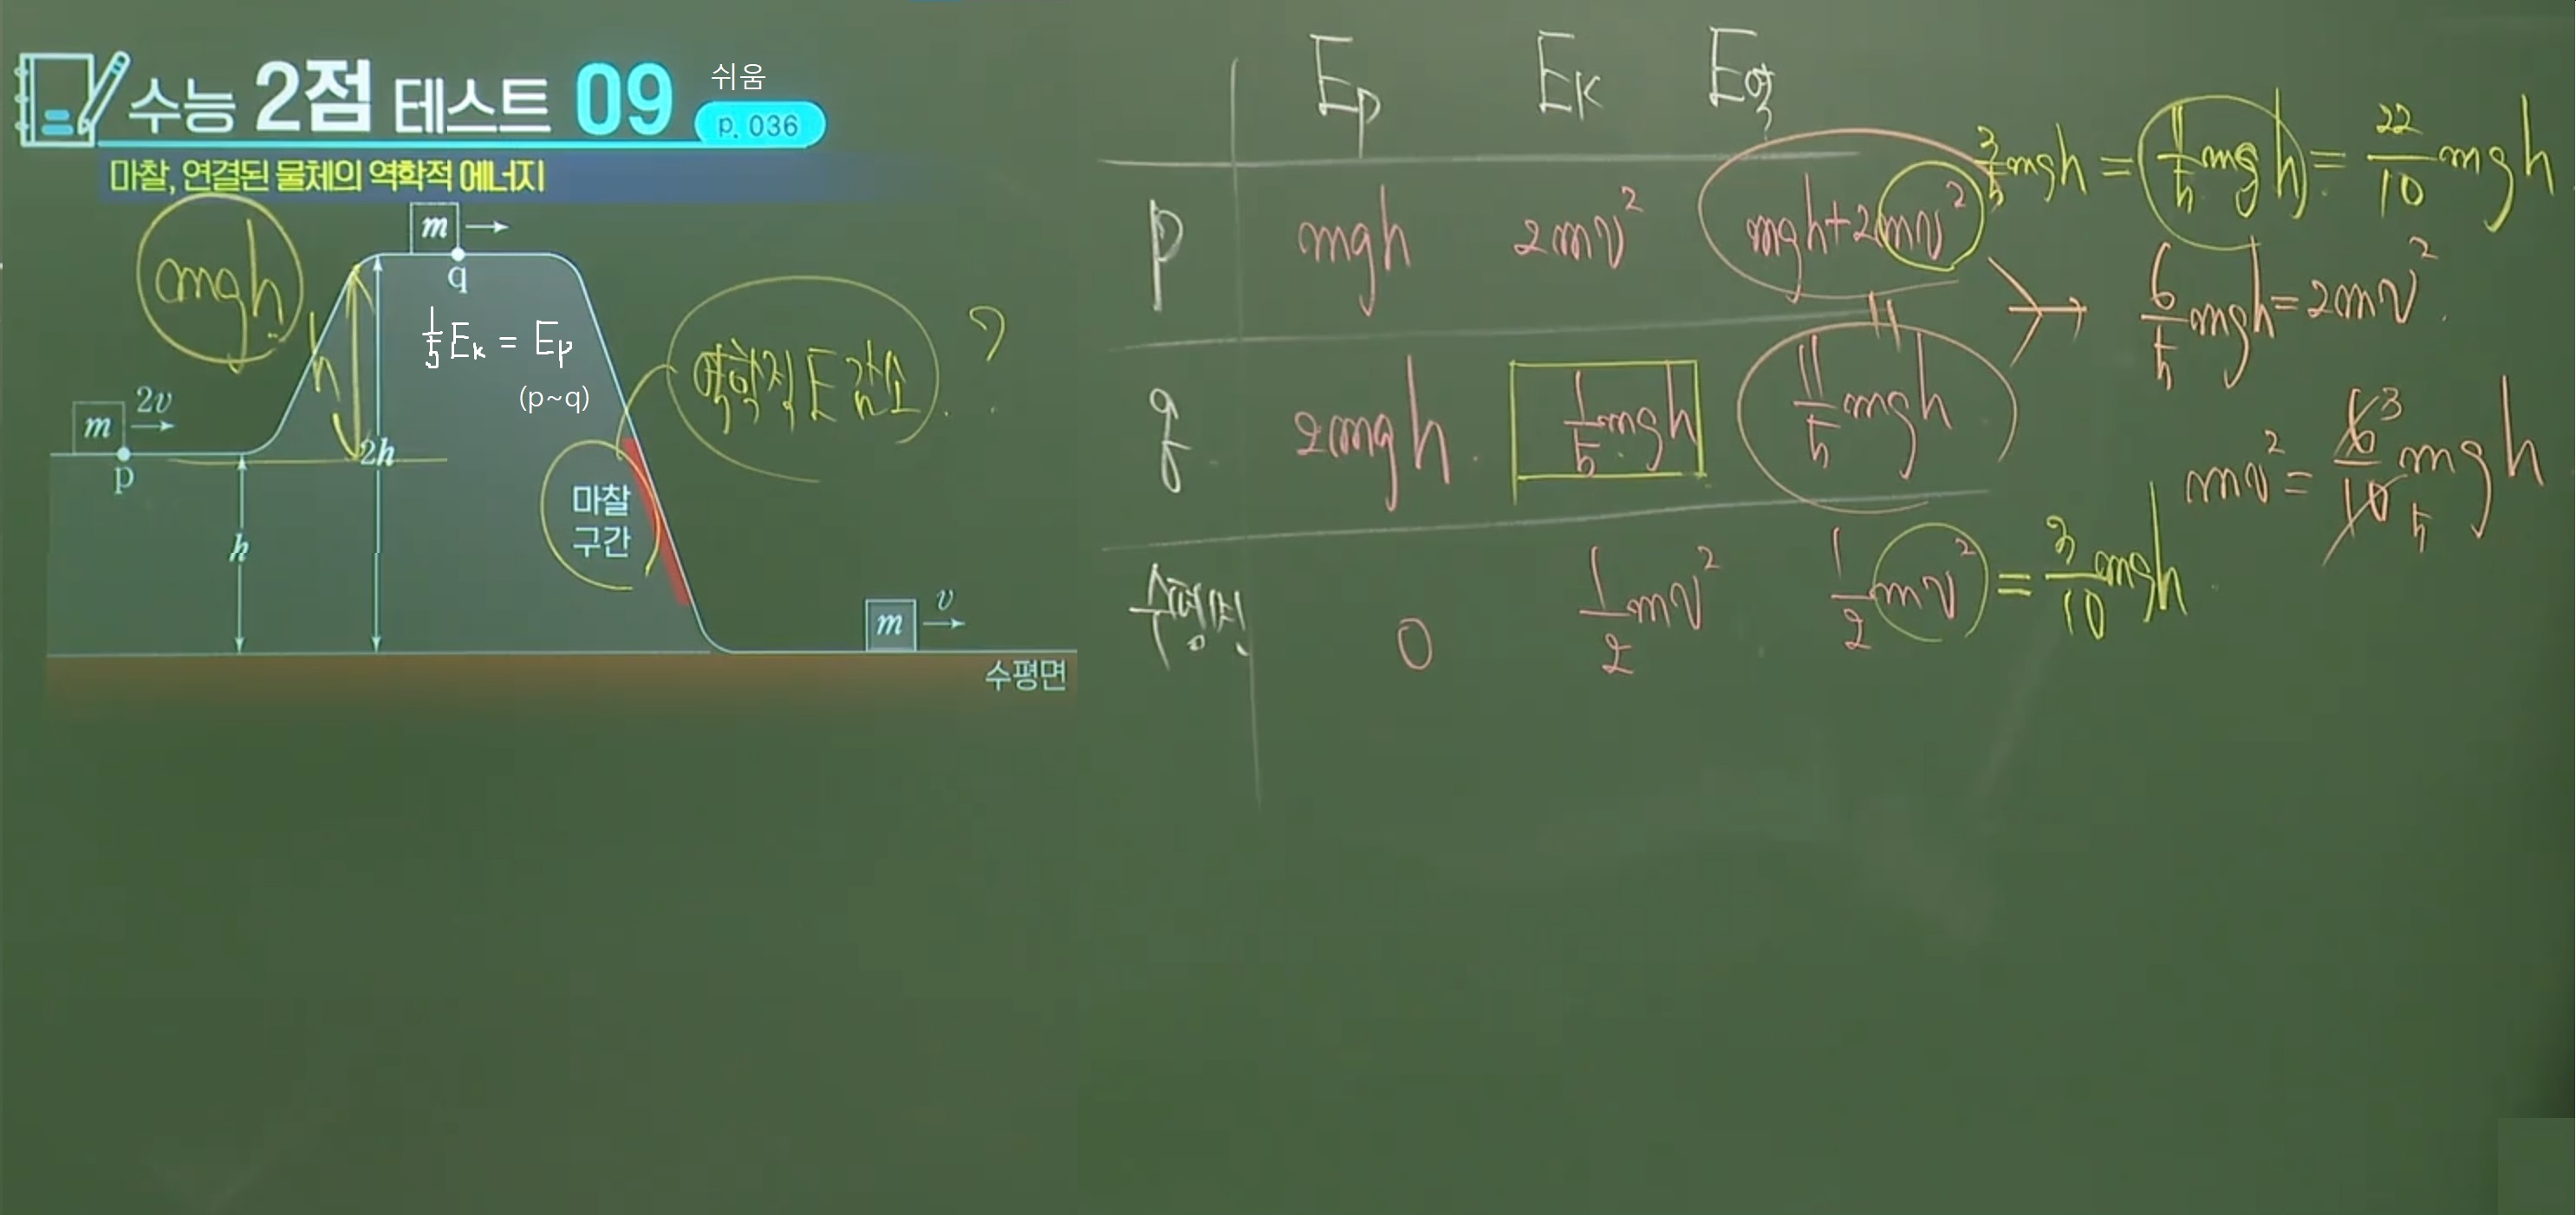 수능 2점 테스트 09
쉬움
p. 036
마찰, 연결된 물체의 역학적 에너지
mgh
m
q
h
1/5 Eₖ = Eₚ
(p~q)
역학적 E 감소 ?
m 2v
p
2h
h
마찰
구간
m v
수평면
Eₚ Eₖ E역
p mgh 2mv² mgh+2mv²
q 2mgh 1/5 mgh 11/5 mgh
수평면 0 1/2 mv² 1/2 mv² = 3/10 mgh
11/5 mgh = 22/10 mgh
6/5 mgh = 2mv²
mv² = 6/10 mgh
3
5